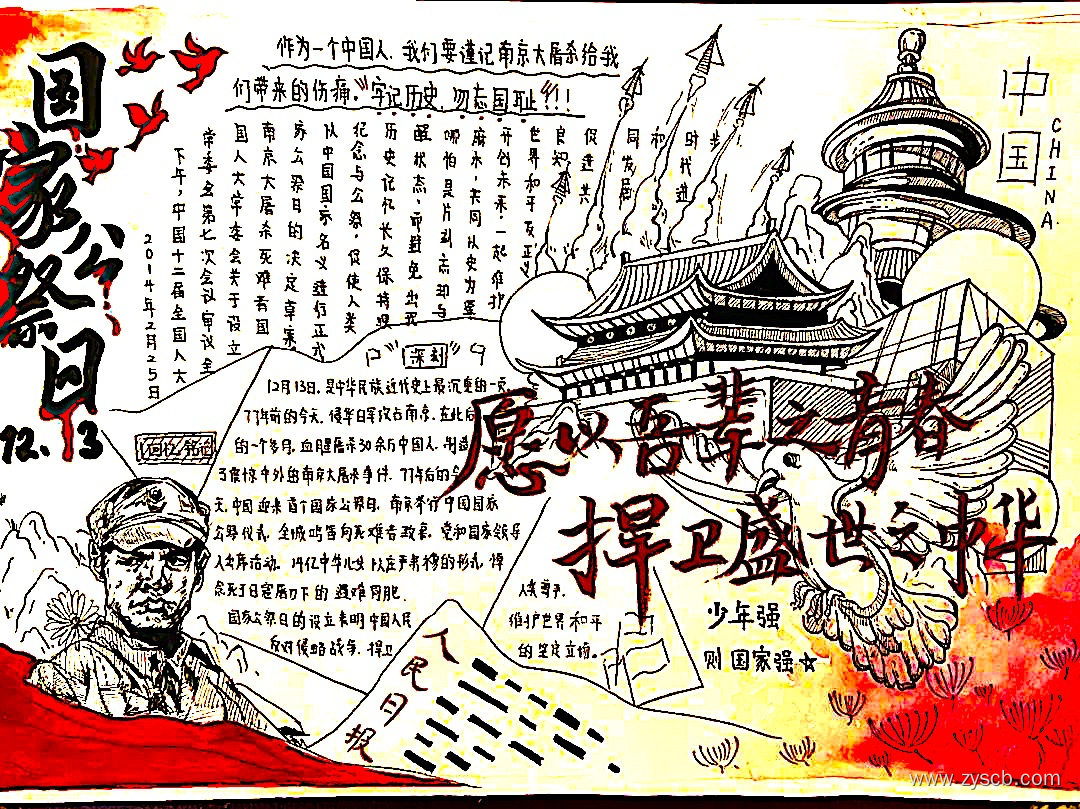 国家公祭日
12.13
作为一个中国人、我们要谨记南京大屠杀给我
们带来的伤痛。"牢记历史,勿忘国耻"!!!
2014年2月25日
下午,中国十二届全国人大
常委会第七次会议审议全
国人大常委会关于设立
南京大屠杀死难者国
家公祭日的决定草案
以中国国家名义进行正式
纪念与公祭,促使人类
历史记忆长久保持唤
醒状态,而避免出现
哪怕是片刻忘却与
麻木,共同从史为鉴
开创未来,一起维护
世界和平及正义
良知,
促进共
同发展
和
时代进
步.
中国
CHINA.
"深刻"
12月13日,是中华民族近代史上最沉重的一页,
77年前的今天,侵华日军攻占南京,在此后
的一个多月,血腥屠杀30余万中国人,制造
了震惊中外的南京大屠杀事件.77年后的今
天,中国迎来首个国家公祭日,南京举行中国国家
公祭仪式,全城鸣笛向死难者致哀,党和国家领导
人出席活动,14亿中华儿女以庄严肃穆的形式,悼
念死于日寇屠刀下的遇难同胞.
国家公祭日的设立表明中国人民
反对侵略战争,捍卫
人类尊严,
维护世界和平
的坚定立场。
回忆铭记
愿以吾辈之青春
捍卫盛世之中华
少年强
则国家强☆
人民日报
www.zyscb.com